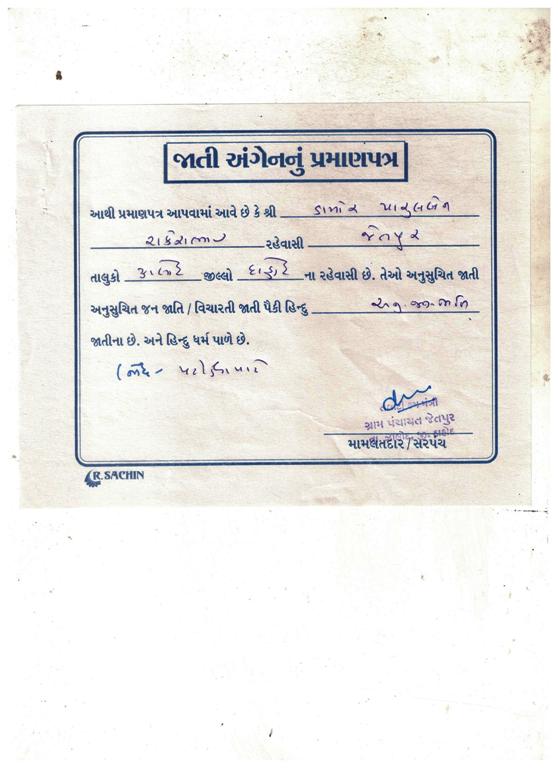 જાતી અંગેનનું પ્રમાણપત્ર
આથી પ્રમાણપત્ર આપવામાં આવે છે કે શ્રી ડામોર પારુલબેન
રાકેશભાઇ રહેવાસી જેતપુર
તાલુકો ઝાલોદ જીલ્લો દાહોદ ના રહેવાસી છે. તેઓ અનુસુચિત જાતી
અનુસુચિત જન જાતિ / વિચારતી જાતી પૈકી હિન્દુ અનુ.જન.જાતિ
જાતીના છે. અને હિન્દુ ધર્મ પાળે છે.
ગ્રામ પંચાયત જેતપુર
તા. ઝાલોદ, જી. દાહોદ
મામલતદાર / સરપંચ
R. SACHIN